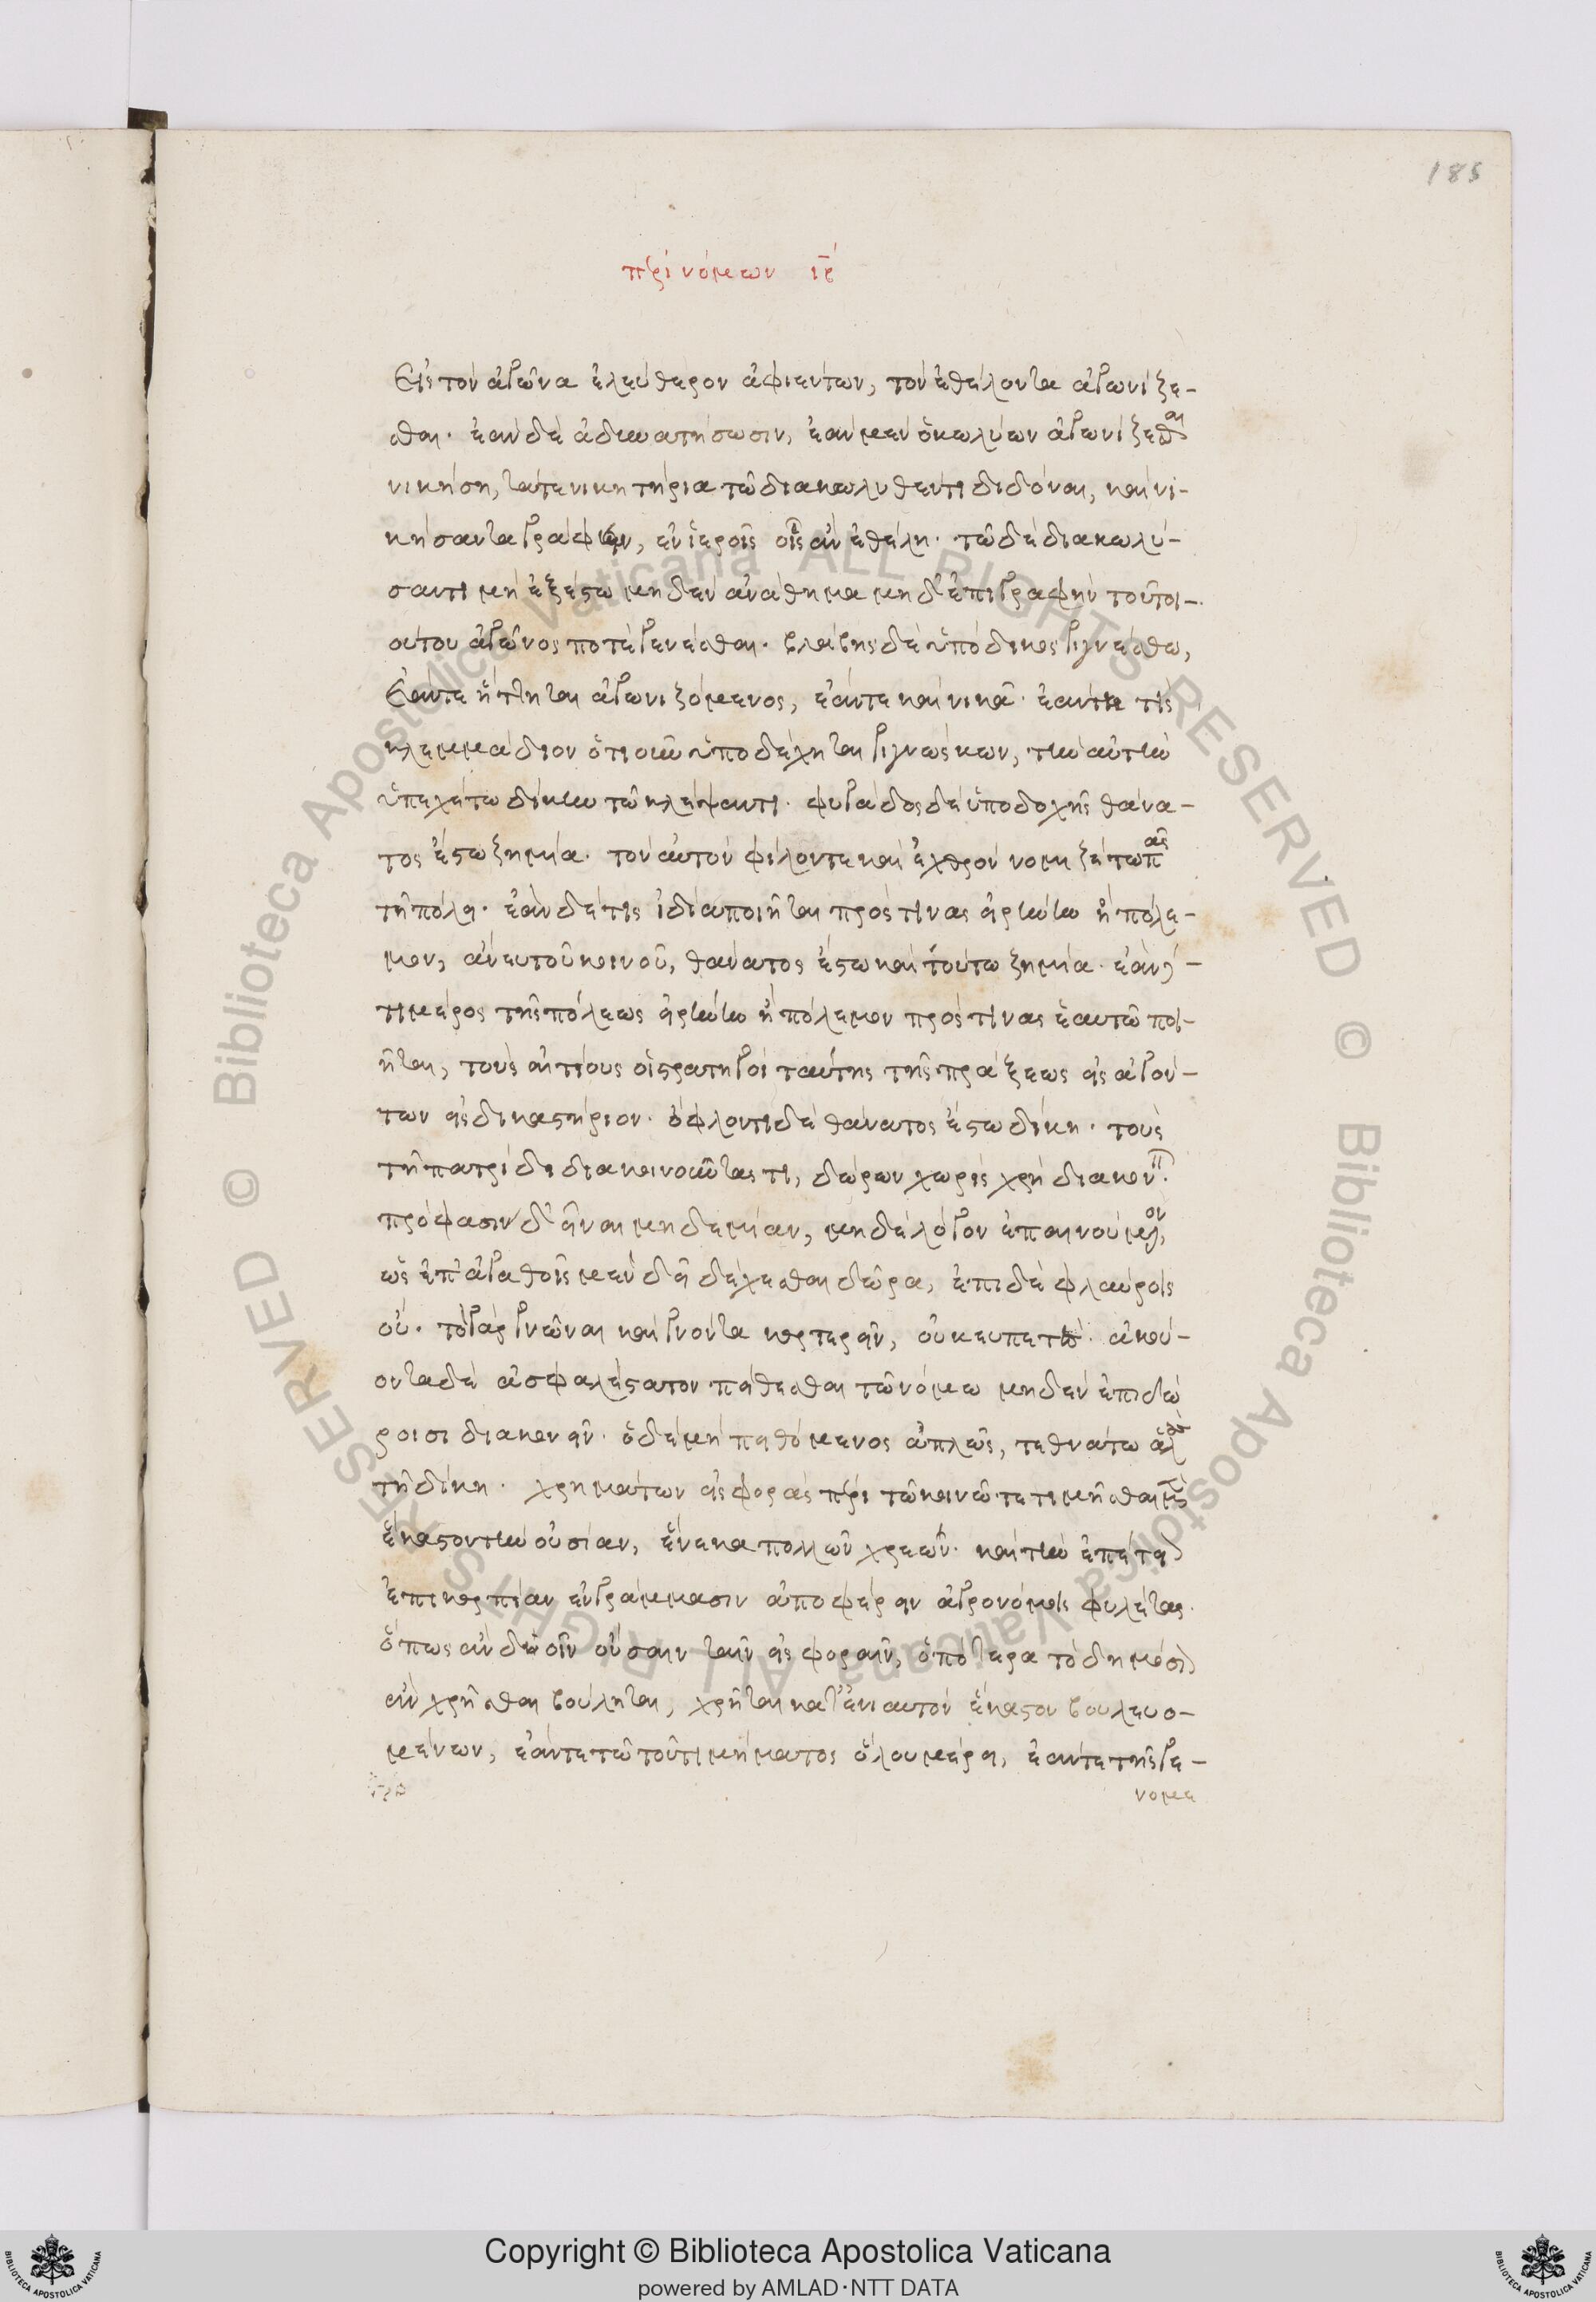 185
περὶ νόμων ιβ
Εἰς τὸν ἀγῶνα ἐλεύθερον ἀφιέντων, τὸν ἐθέλοντα ἀγωνίζε-
σθαι. ἐὰν δὲ ἀδυνατήσωσιν, ἐὰν μὲν ὁ κωλύων ἀγωνίζεσθαι
νικήσῃ, τά τε νικητήρια τῶ διακωλυθέντι διδόναι, καὶ νι-
κήσαντα γράφειν, ἐν ἱεροῖς οἷς ἂν ἐθέλη. τῶ δὲ διακωλύ-
σαντι μὴ ἐξέστω μηδὲν ἀνάθημα μηδ' ἐπιγραφὴν τοῦ τοι-
ούτου ἀγῶνος ποτὲ γενέσθαι. βλάβης δὲ ὑπόδικος γιγνέσθω,
Ἐάντε ἡττῆται ἀγωνιζόμενος, ἐάντε καὶ νικᾶ. ἐάν τις
κλεμμάδιον ὁτιοῦν ὑποδέχηται γιγνώσκων, τὴν αὐτὴν
ὑπεχέτω δίκην τῶ κλέψαντι. φυγάδος δὲ ὑποδοχῆς θάνα-
τος ἔστω ζημία. τὸν αὐτὸν φίλον τε καὶ ἐχθρὸν νομιζέτω πᾶς
τῆ πόλει. ἐὰν δέ τις ἰδία ποιῆται πρός τινας εἰρήνην ἢ πόλε-
μον, ἄνευ τοῦ κοινοῦ, θάνατος ἔστω καὶ τούτω ζημία. ἐὰν δέ
τι μέρος τῆς πόλεως εἰρήνην ἢ πόλεμον πρός τινας ἑαυτῶ ποι-
ῆται, τοὺς αἰτίους οἱ στρατηγοὶ ταύτης τῆς πράξεως εἰσαγόν-
των εἰς δικαστήριον. ὀφλόντι δὲ θάνατος ἔστω δίκη. τοὺς
τῆ πατρίδι διακονοῦντάς τι, δώρων χωρὶς χρὴ διακονεῖν.
πρόφασιν δ' εἶναι μηδεμίαν, μηδὲ λόγον ἐπαινούμενον,
ὡς ἐπ' ἀγαθοῖς μὲν δεῖ δέχεσθαι δῶρα, ἐπὶ δὲ φλαύροις
οὔ. τὸ γὰρ γνῶναι καὶ γνόντα καρτερεῖν, οὐκ εὐπετὲς. ἀκού-
οντα δὲ ἀσφαλέστατον πείθεσθαι τῶ νόμω μηδὲν ἐπὶ δώ
ροισι διακονεῖν. ὁ δὲ μὴ πειθόμενος ἁπλῶς, τεθνάτω ἁλοὺς
τῆ δίκη. χρημάτων εἰσφορᾶς περὶ τῶ κοινῶ. τετιμῆσθαι μὲν
ἕκαστον τὴν οὐσίαν, ἕνεκα πολλῶν χρεὼν. καὶ τὴν ἐπέτειον
ἐπικαρπίαν ἐν γράμμασιν ἀποφέρειν ἀγρονόμοις φυλέτας.
ὅπως ἂν δυοῖν οὔσαιν ταῖν εἰσφοραῖν, ὁποτέρα τὸ δημόσιον
ἂν χρῆσθαι βούληται, χρῆται κατ' ἐνιαυτὸν ἕκαστον βουλευο-
μένων, ἐάντε τῶ τοῦ τιμήματος ὅλου μέρει, ἐάντε τῆς γε-
νομε